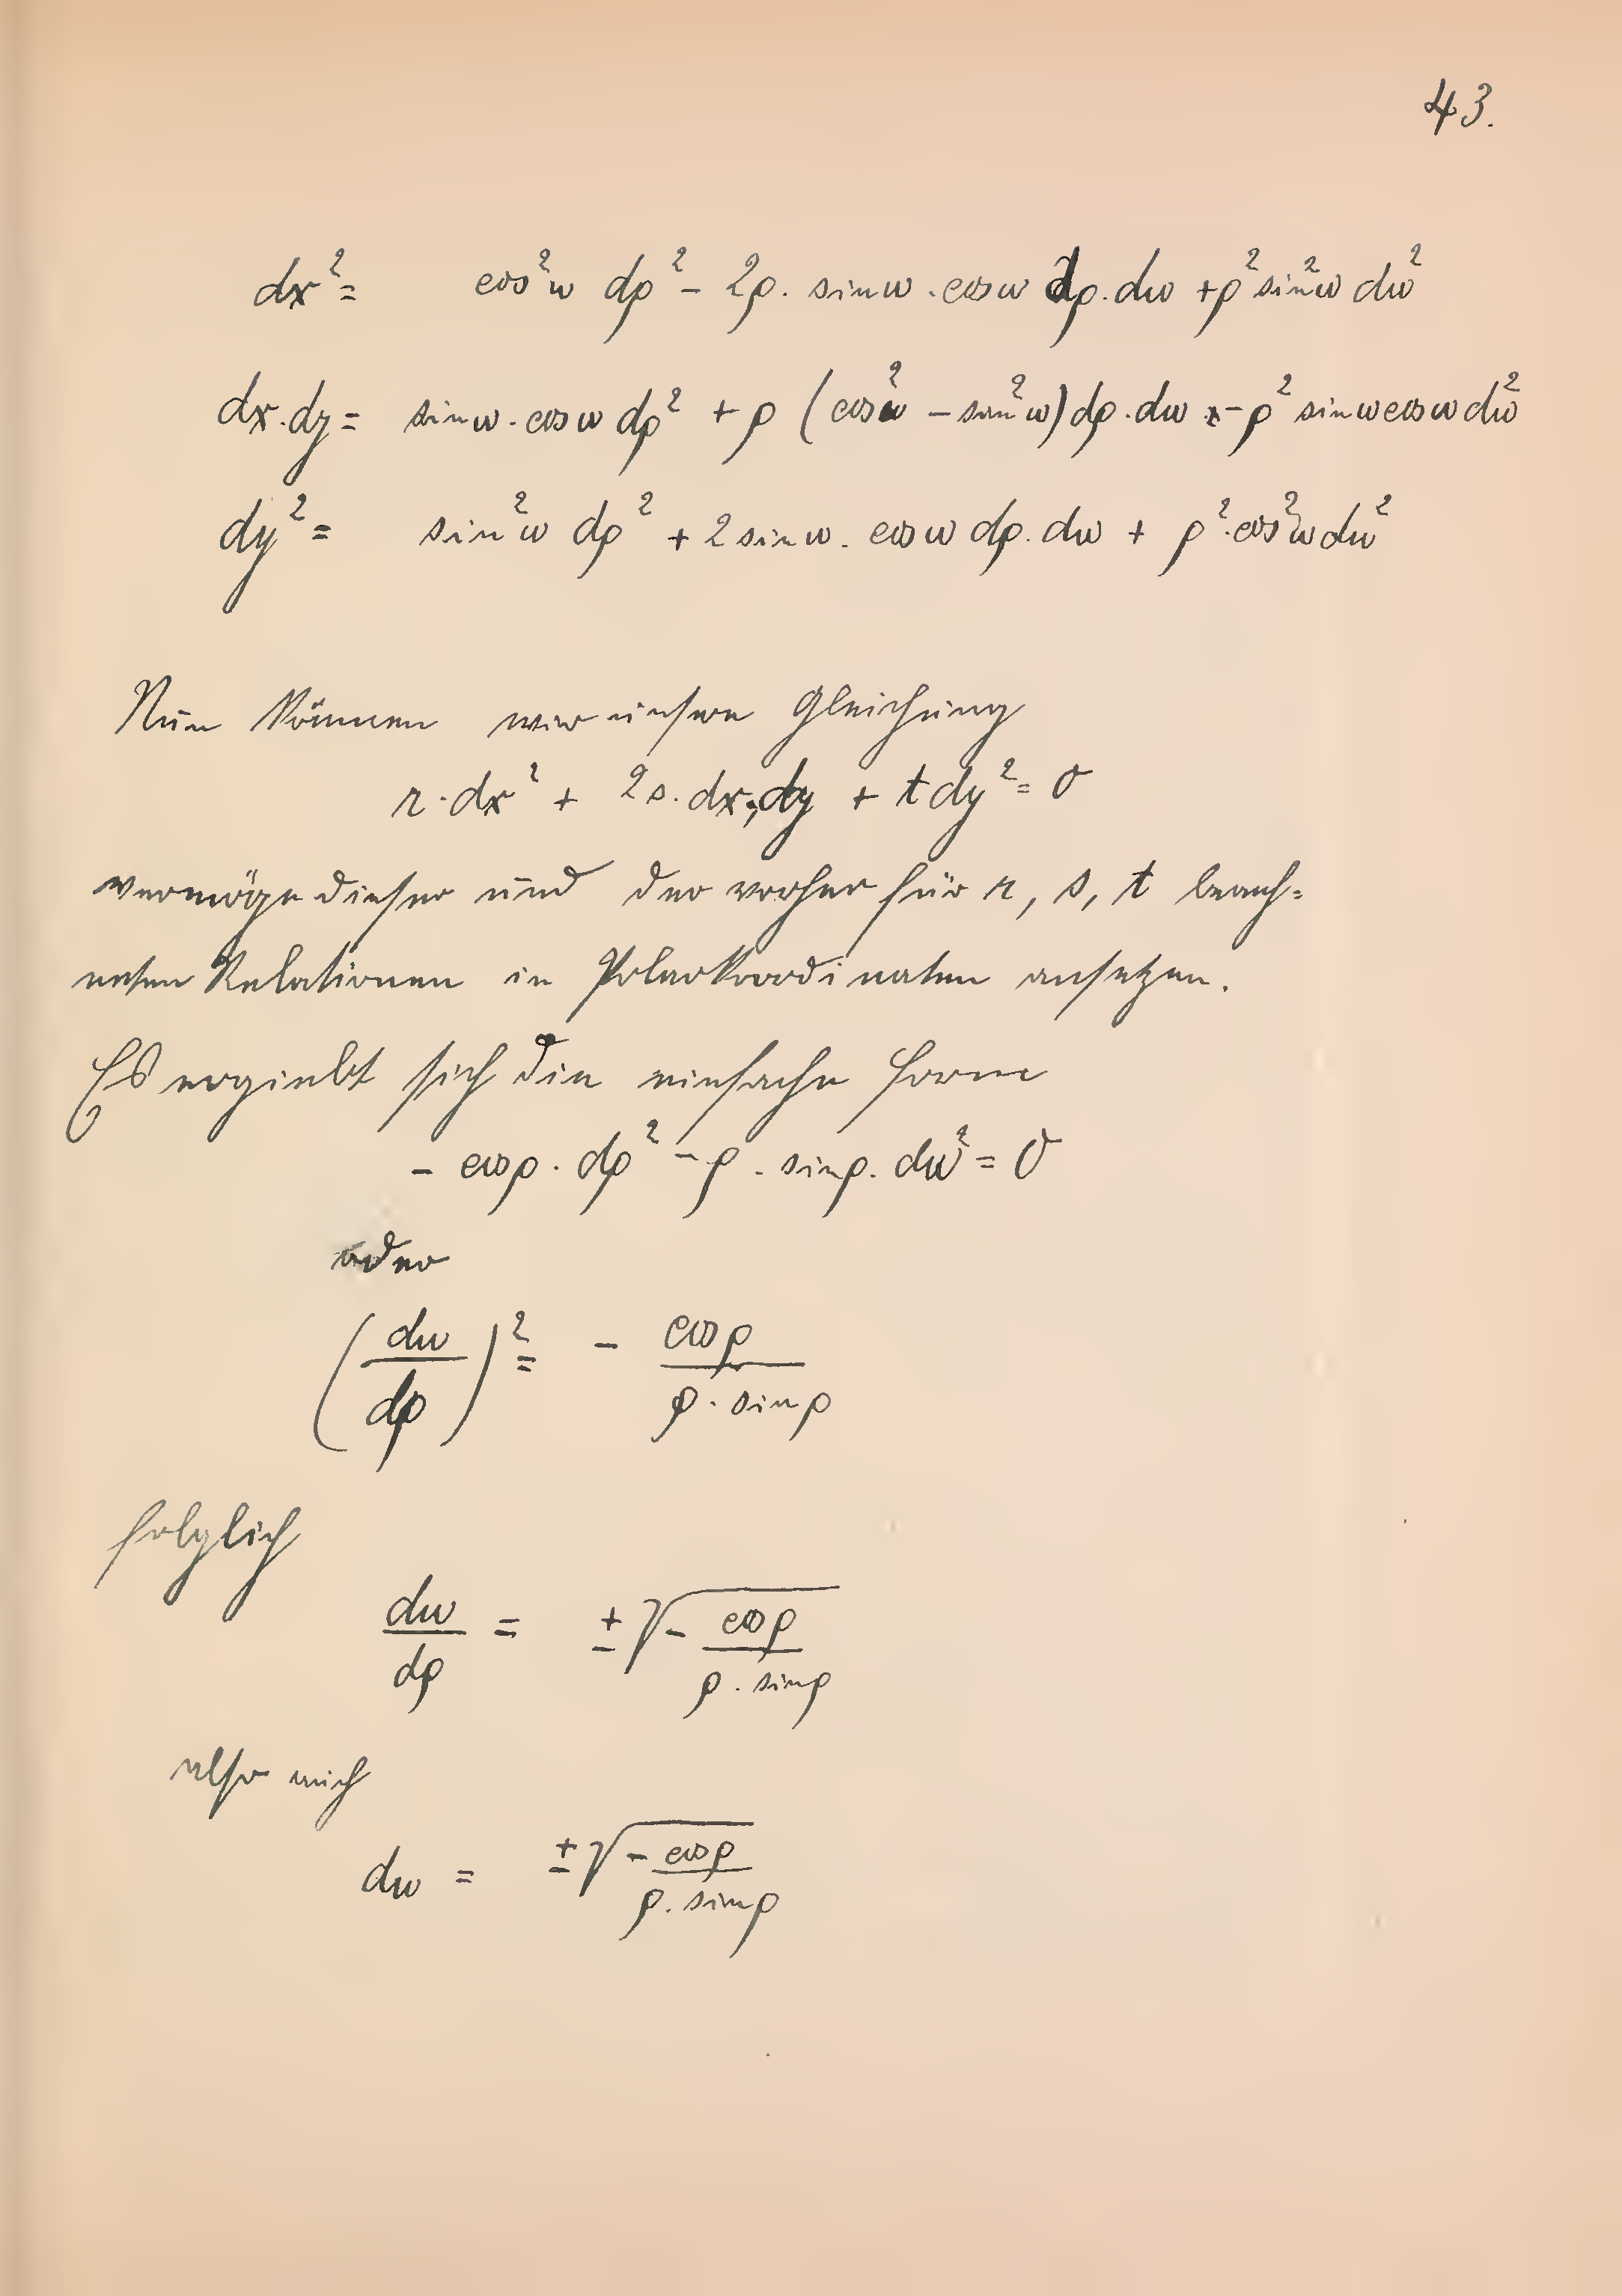 43.
dx² = cos²ω dρ² - 2ρ. sinω . cosω dρ. dω + ρ² sin²ω dω²
dx.dy = sinω . cosω dρ² + ρ (cos²ω - sin²ω) dρ . dω - ρ² sinω cosω dω²
dy² = sin²ω dρ² + 2 sinω . cosω dρ. dω + ρ². cos²ω dω²
Nun können wir unsere Gleichung
r . dx² + 2s . dx . dy + t dy² = 0
vermöge dieser und der vorher für r, s, t berech=
neten Relationen in Polarkoordinaten ansetzen.
Es ergiebt sich die einfache Form
- cosρ . dρ² - ρ . sinρ. dω² = 0
oder
(dω/dρ)² = - cosρ / ρ . sinρ
folglich
dω/dρ = ± √ - cosρ / ρ . sinρ
also auch
dω = ± √ - cosρ / ρ . sinρ